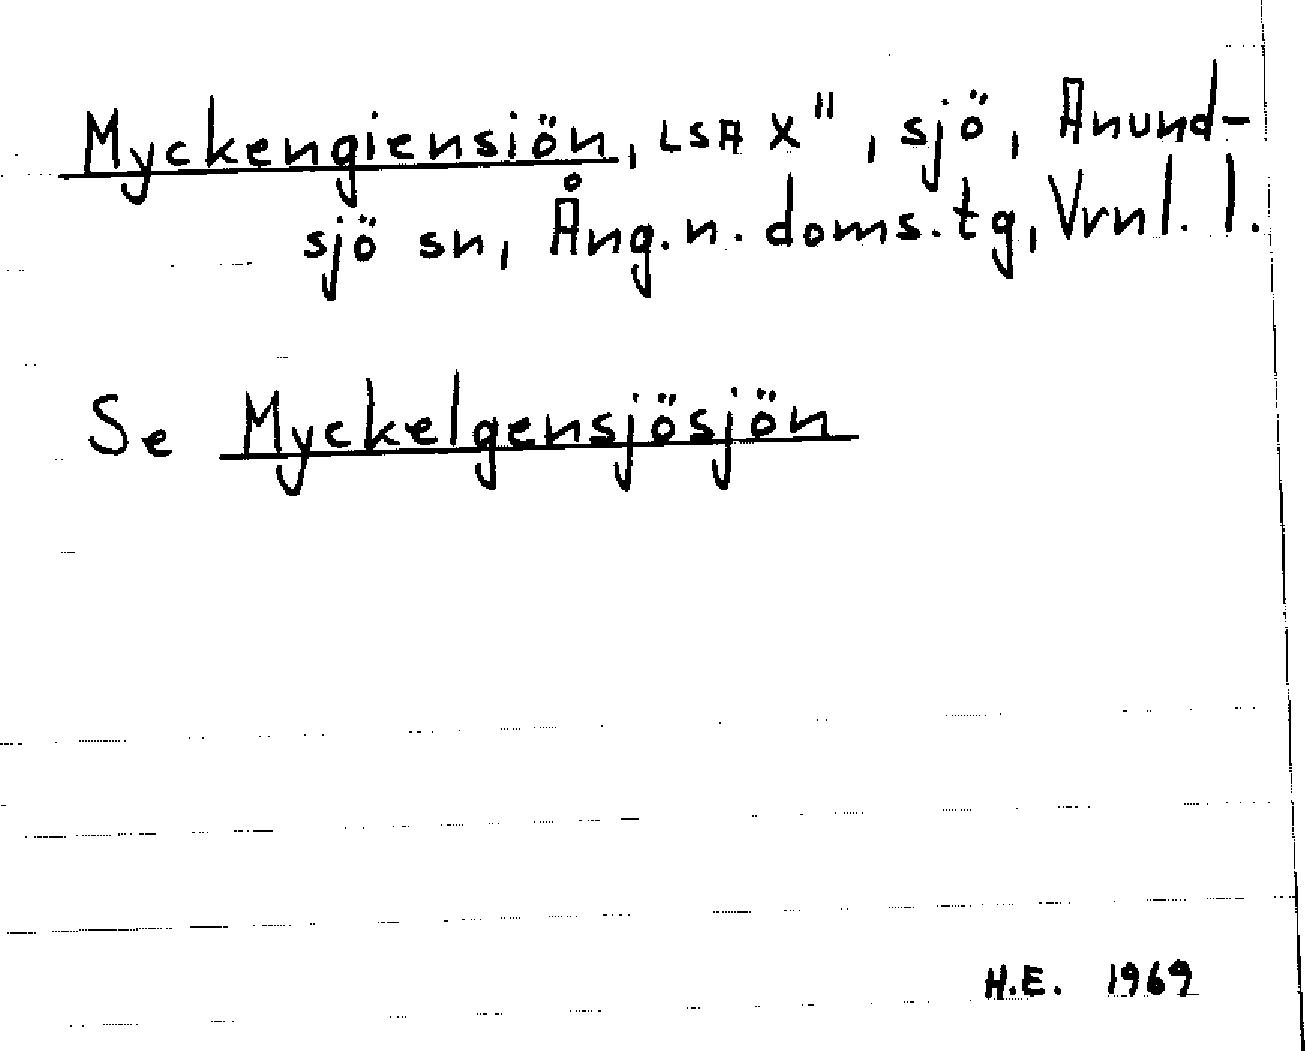 Myckengiensiön, LSA X", sjö, Anund-
sjö sn, Ång.n.doms.tg, Vrnl. l.
Se Myckelgensjösjön
H.E. 1969